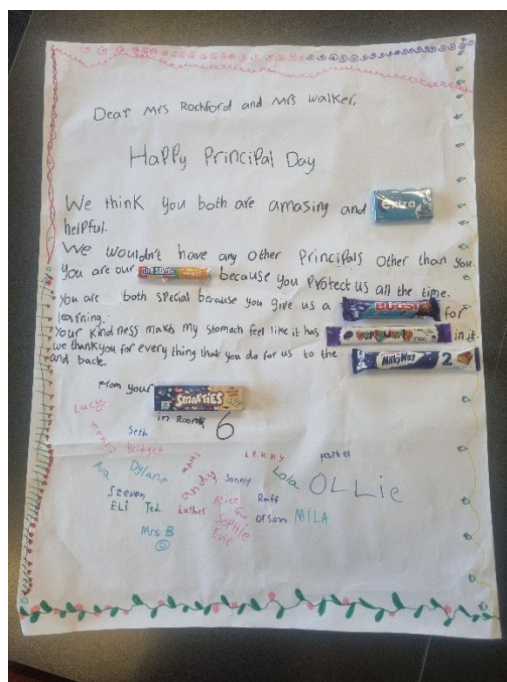 Dear Mrs Rochford and Mrs Walker,
Happy Principal Day
We think you both are amasing and extra
helpful.
We wouldn't have any other Principals Other than you.
You are our because you Protect us all the time.
You are both special because you give us a for
learning.
Your Kindness makes my stomach feel like it has in it.
we thankyou for every thing that you do for us to the MilkyWay 2
and back.
From your SMARTIES
in Room 6
Lucy
Seth
Lenny
parker
Bridget
Ava
Dylan
andy
Sonny
Lola
OLLie
Steven
Alice
Raff
ELi
Ted
Luther
Sophie
orson
MILA
Mrs B
Evie